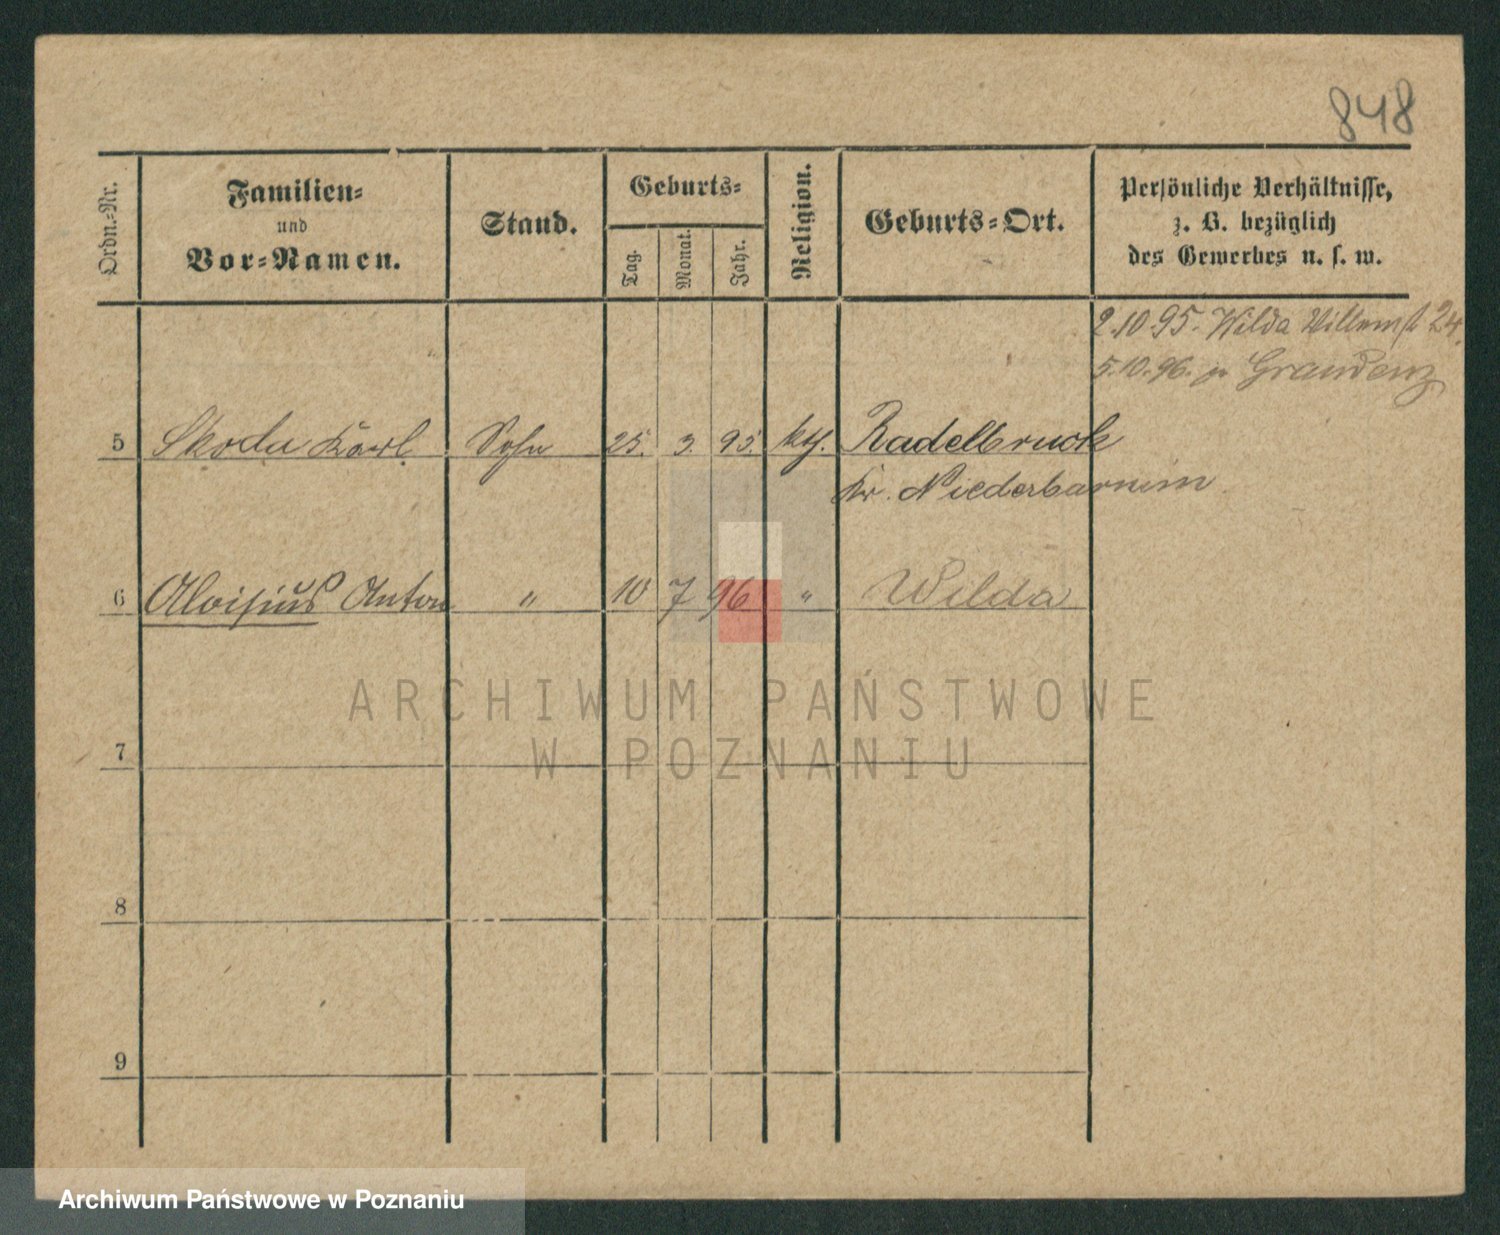 848
Ordn.-Nr.
Familien-
und
Vor-Namen.
Stand.
Geburts-
Tag.
Monat.
Jahr.
Religion.
Geburts-Ort.
Persönliche Verhältnisse,
z. B. bezüglich
des Gewerbes u. s. w.
2.10.95. Wilda Willemst 24.
5.10.96. Graudenz
5 Skoda Karl Sohn 25. 3. 95. kth. Radelbruck
Kr. Niederbarnim
6 Aloisius Anton " 10 7 96 " Wilda
ARCHIWUM PAŃSTWOWE
W POZNANIU
7
8
9
Archiwum Państwowe w Poznaniu